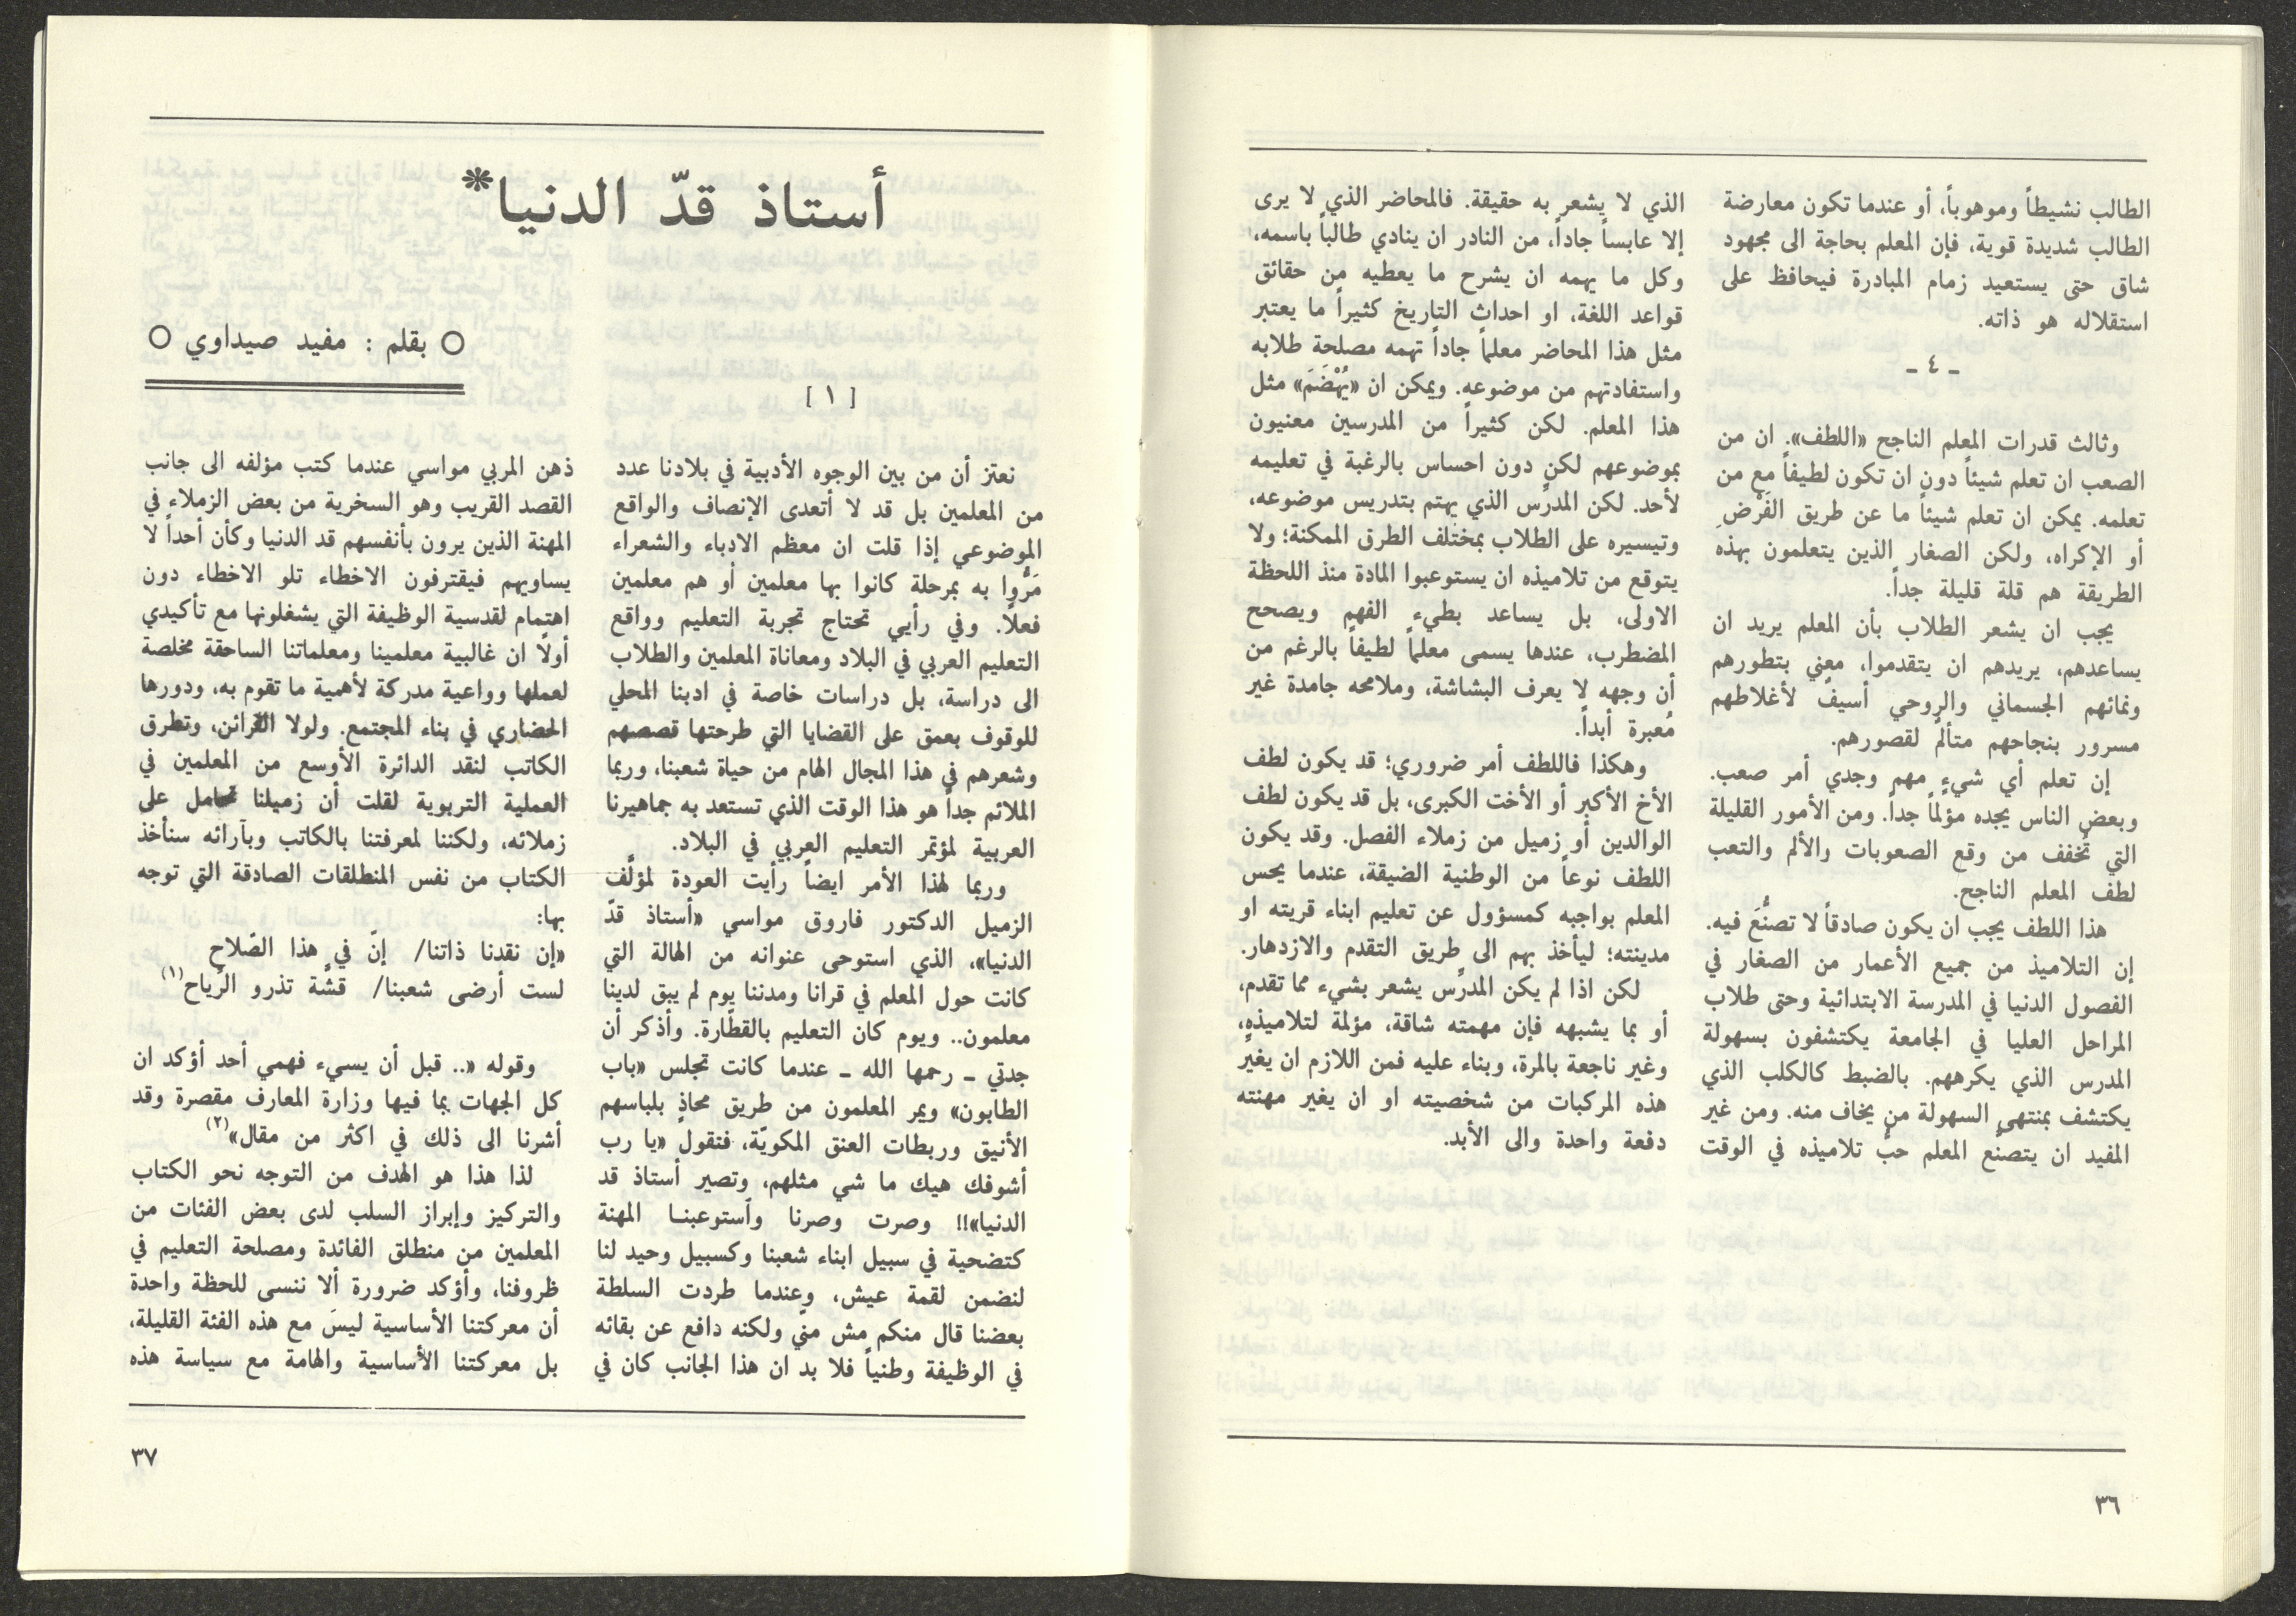 الطالب نشيطاً وموهوباً، أو عندما تكون معارضة
الطالب شديدة قوية، فإن المعلم بحاجة الى مجهود
شاق حتى يستعيد زمام المبادرة فيحافظ على
استقلاله هو ذاته.
ـ ٤ ـ
وثالث قدرات المعلم الناجح «اللطف». ان من
الصعب ان تعلم شيئاً دون ان تكون لطيفاً مع من
تعلمه. يمكن ان تعلم شيئاً ما عن طريق الفَرْضِ
أو الإكراه، ولكن الصغار الذين يتعلمون بهذه
الطريقة هم قلة قليلة جداً.
يجب ان يشعر الطلاب بأن المعلم يريد ان
يساعدهم، يريدهم ان يتقدموا، معني بتطورهم
ونمائهم الجسماني والروحي أسيفٌ لأغلاطهم
مسرور بنجاحهم متألمٌ لقصورهم.
إن تعلم أي شيءٍ مهم وجدي أمر صعب.
وبعض الناس يجده مؤلماً جداً. ومن الأمور القليلة
التي تُخفف من وقع الصعوبات والألم والتعب
لطف المعلم الناجح.
هذا اللطف يجب ان يكون صادقاً لا تصنُّعَ فيه.
إن التلاميذ من جميع الأعمار من الصغار في
الفصول الدنيا في المدرسة الابتدائية وحتى طلاب
المراحل العليا في الجامعة يكتشفون بسهولة
المدرس الذي يكرههم. بالضبط كالكلب الذي
يكتشف بمنتهى السهولة من يخاف منه. ومن غير
المفيد ان يتصنّع المعلم حبُّ تلاميذه في الوقت
الذي لا يشعر به حقيقة. فالمحاضر الذي لا يرى
إلا عابساً جاداً، من النادر ان ينادي طالباً باسمه،
وكل ما يهمه ان يشرح ما يعطيه من حقائق
قواعد اللغة، او احداث التاريخ كثيراً ما يعتبر
مثل هذا المحاضر معلماً جاداً تهمه مصلحة طلابه
واستفادتهم من موضوعه. ويمكن ان «يُهْضَمَ» مثل
هذا المعلم. لكن كثيراً من المدرسين معنيون
بموضوعهم لكن دون احساس بالرغبة في تعليمه
لأحد. لكن المدرّس الذي يهتم بتدريس موضوعه،
وتيسيره على الطلاب بمختلف الطرق الممكنة؛ ولا
يتوقع من تلاميذه ان يستوعبوا المادة منذ اللحظة
الاولى، بل يساعد بطيء الفهم ويصحح
المضطرب، عندها يسمى معلماً لطيفاً بالرغم من
أن وجهه لا يعرف البشاشة، وملامحه جامدة غير
مُعبرة أبداً.
وهكذا فاللطف أمر ضروري؛ قد يكون لطف
الأخ الأكبر أو الأخت الكبرى، بل قد يكون لطف
الوالدين أو زميل من زملاء الفصل. وقد يكون
اللطف نوعاً من الوطنية الضيقة، عندما يحس
المعلم بواجبه كمسؤول عن تعليم ابناء قريته او
مدينته؛ ليأخذ بهم الى طريق التقدم والازدهار.
لكن اذا لم يكن المدرّس يشعر بشيء مما تقدم،
أو بما يشبهه فإن مهمته شاقة، مؤلمة لتلاميذه،
وغير ناجعة بالمرة، وبناء عليه فمن اللازم ان يغيّر
هذه المركبات من شخصيته او ان يغير مهنته
دفعة واحدة والى الأبد.
٣٦
أستاذ قدّ الدنيا*
○ بقلم : مفيد صيداوي ○
[ ١ ]
نعتز أن من بين الوجوه الأدبية في بلادنا عدد
من المعلمين بل قد لا أتعدى الإنصاف والواقع
الموضوعي إذا قلت ان معظم الادباء والشعراء
مَرُّوا به بمرحلة كانوا بها معلمين أو هم معلمين
فعلاً. وفي رأيي تحتاج تجربة التعليم وواقع
التعليم العربي في البلاد ومعاناة المعلمين والطلاب
الى دراسة، بل دراسات خاصة في ادبنا المحلي
للوقوف بعمق على القضايا التي طرحتها قصصهم
وشعرهم في هذا المجال الهام من حياة شعبنا، وربما
الملائم جداً هو هذا الوقت الذي تستعد به جماهيرنا
العربية لمؤتمر التعليم العربي في البلاد.
وربما لهذا الأمر ايضاً رأيت العودة لمؤلَّف
الزميل الدكتور فاروق مواسي «أستاذ قدّ
الدنيا»، الذي استوحى عنوانه من الهالة التي
كانت حول المعلم في قرانا ومدننا يوم لم يبق لدينا
معلمون.. ويوم كان التعليم بالقطّارة. وأذكر أن
جدتي ـ رحمها الله ـ عندما كانت تجلس «باب
الطابون» ويمر المعلمون من طريق محاذٍ بلباسهم
الأنيق وربطات العنق المكويّة، فتقول «يا رب
أشوفك هيك ما شي مثلهم، وتصير أستاذ قد
الدنيا»!! وصرت وصرنا وأستوعبنا المهنة
كتضحية في سبيل ابناء شعبنا وكسبيل وحيد لنا
لنضمن لقمة عيش، وعندما طردت السلطة
بعضنا قال منكم مش مني ولكنه دافع عن بقائه
في الوظيفة وطنياً فلا بد ان هذا الجانب كان في
ذهن المربي مواسي عندما كتب مؤلفه الى جانب
القصد القريب وهو السخرية من بعض الزملاء في
المهنة الذين يرون بأنفسهم قد الدنيا وكأن أحداً لا
يساويهم فيقترفون الاخطاء تلو الاخطاء دون
اهتمام لقدسية الوظيفة التي يشغلونها مع تأكيدي
أولاً ان غالبية معلمينا ومعلماتنا الساحقة مخلصة
لعملها وواعية مدركة لأهمية ما تقوم به، ودورها
الحضاري في بناء المجتمع. ولولا القرائن، وتطرق
الكاتب لنقد الدائرة الأوسع من المعلمين في
العملية التربوية لقلت أن زميلنا تحامل على
زملائه، ولكننا لمعرفتنا بالكاتب وبآرائه سنأخذ
الكتاب من نفس المنطلقات الصادقة التي توجه
بها:
«إن نقدنا ذاتنا/ إنّ في هذا الصّلاح
لست أرضى شعبنا/ قشَّة تذرو الرّياح(١)
وقوله «.. قبل أن يسيء فهمي أحد أؤكد ان
كل الجهات بما فيها وزارة المعارف مقصرة وقد
أشرنا الى ذلك في اكثر من مقال»(٢)
لذا هذا هو الهدف من التوجه نحو الكتاب
والتركيز وإبراز السلب لدى بعض الفئات من
المعلمين من منطلق الفائدة ومصلحة التعليم في
ظروفنا، وأؤكد ضرورة ألا ننسى للحظة واحدة
أن معركتنا الأساسية ليسَ مع هذه الفئة القليلة،
بل معركتنا الأساسية والهامة مع سياسة هذه
٣٧